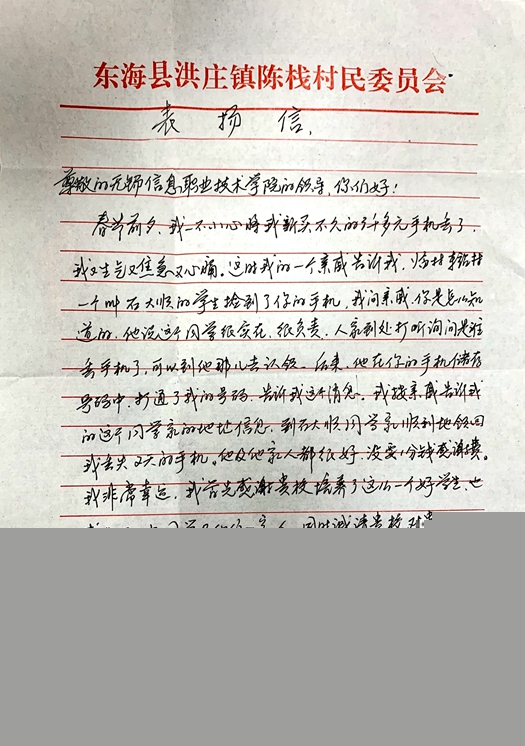 东海县洪庄镇陈栈村民委员会
表扬信.
尊敬的无锡信息职业技术学院的领导,你们好!
春节前夕,我一不小心将我新买不久的3千多元手机丢了,
我又生气又焦急又心痛。这时我的一个亲戚告诉我,
一个叫石大顺的学生捡到了你的手机,我问亲戚,你是怎么知
道的,他说这个同学很实在、很负责,人家到处打听询问是谁
丢手机了,可以到他那儿去认领。后来,他在你的手机储存
号码中,打通了我的号码,告诉我这个消息。我按亲戚告诉我
的这个同学家的地址信息,到石大顺同学家顺利地领回
我丢失又天的手机。他及他家人都很好,没要1分钱感谢费。
我非常幸运,我首先感谢贵校培养了这么一个好学生,也